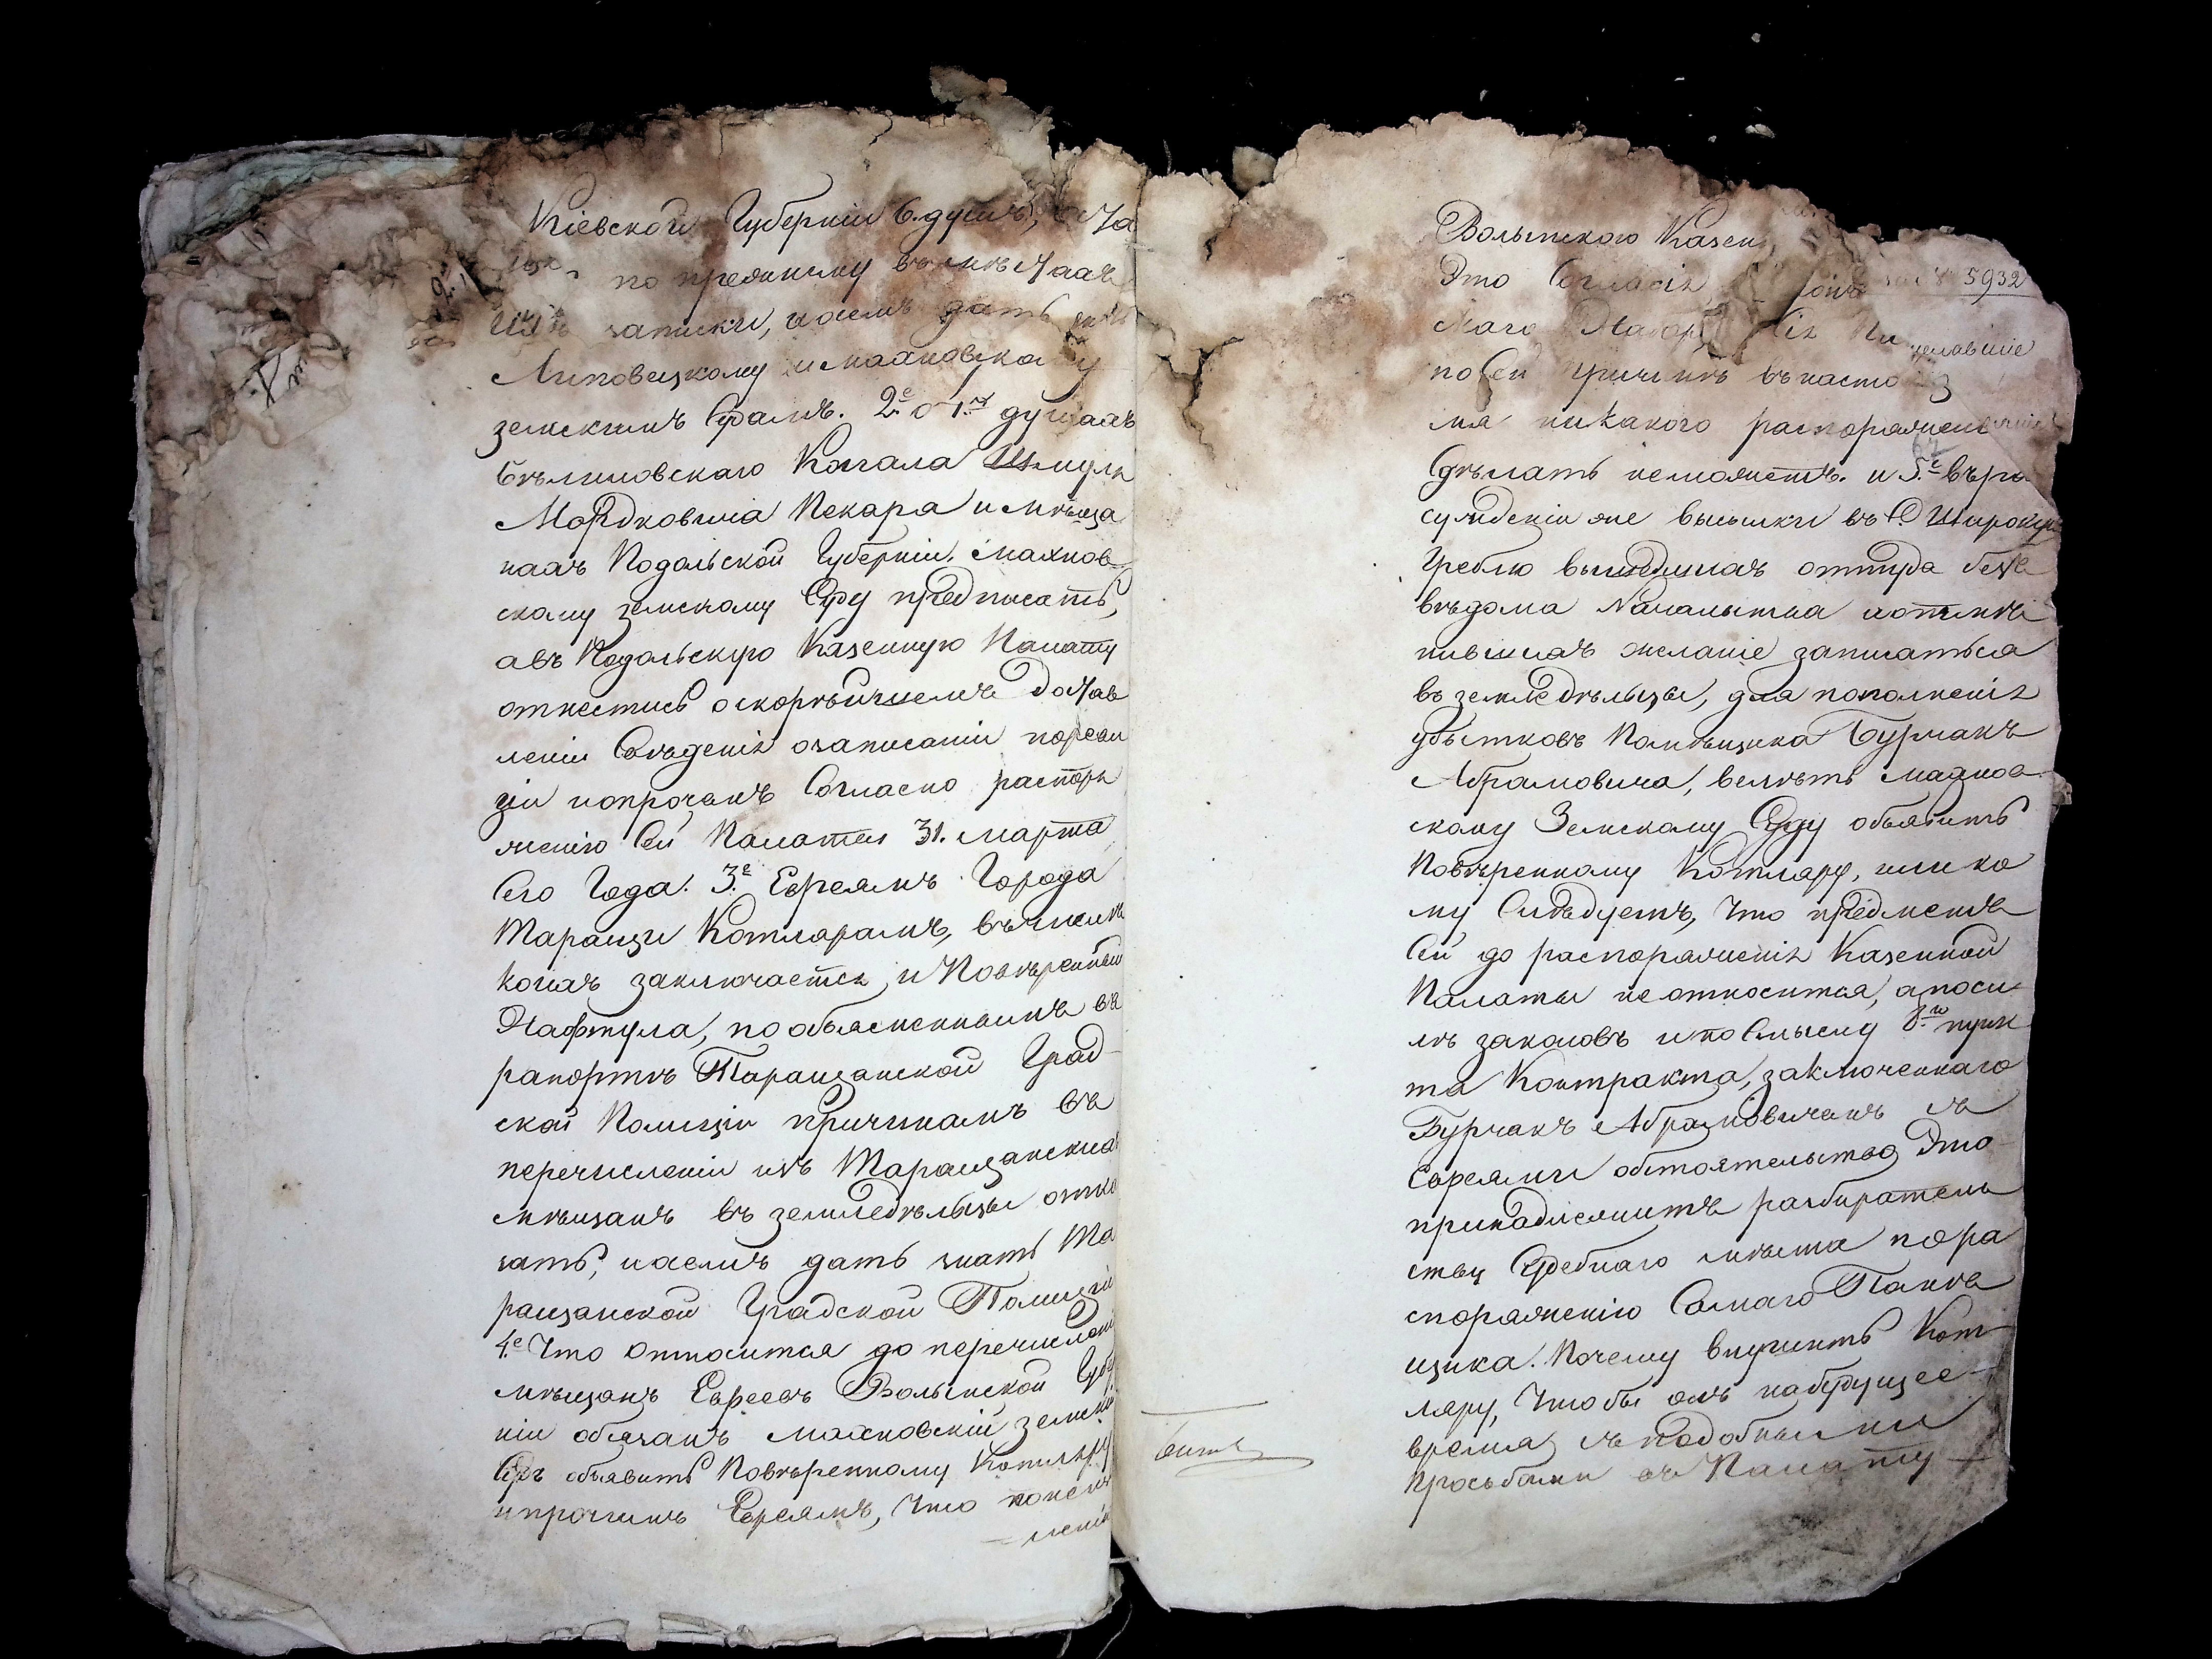 Кіевской Губерніи 6. душъ, оста
по прежнему въ мѣстахъ
ихъ записки, и о семъ дать знать
Липовецкому и махновскому
земскимъ Судамъ. 2е о 7.ми душахъ
Бѣлиловскаго Кагала Шмуля
Мордковича Пекара и мѣща
нахъ Подольской Губерніи. махнов
скому земскому Суду предписать,
а въ Подольскую Казенную Палату
отнестись о скорѣйшемъ достав
леніи Свѣденія о записаніи по реви
зіи и о прочемъ Согласно распоря
женію Сей Палаты 31. марта
Сего Года. 3е Евреямъ Города
Таращи Котлярамъ, въ числѣ
коихъ заключается и Повѣренный
Нафтула, по объясненнымъ въ
рапортѣ Таращанской Град
ской Полиціи причинамъ въ
перечисленіи изъ Таращанскихъ
мѣщанъ въ земледѣльцы отка
зать, и о семъ дать знать Та
ращанской Градской Полиціи
4е Что относится до перечисленія
мѣщанъ Евреевъ Волынской Губер
ніи обязанъ махновскій земскій
Судъ объявить Повѣренному Котляру
и прочимъ Евреямъ, что
Волынского Казен
Это Согласія 5932
скаго
по сей причинѣ въ насто
мя никакого распоряжения
Сдѣлать не можетъ. и 5.е въ ра
сужденіи же высылки въ С. Широкую
Греблю вышедшихъ оттуда безъ
вѣдома Начальства и отмѣ
нившихъ желаніе записаться
въ земледѣльцы, для пополненія
убытковъ Помѣщика Бурчакъ
Абрамовича, велѣть махнов
скому Земскому Суду объявить
Повѣренному Котляру, или ко
му Слѣдуетъ, что предметъ
Сей до распоряженія Казенной
Палаты не относится, а по си
лѣ законовъ и по Смыслу 8.го пунк
та Контракта, заключеннаго
Бурчакъ Абрамовичемъ съ
Евреями обстоятельство Это
принадлежитъ разбиратель
ству Судебнаго мѣста и ра
споряженію Самаго Помѣ
щика. Почему внушить Кот
ляру, Чтобы онъ на будущее
время съ подобными
Просьбами въ Палату